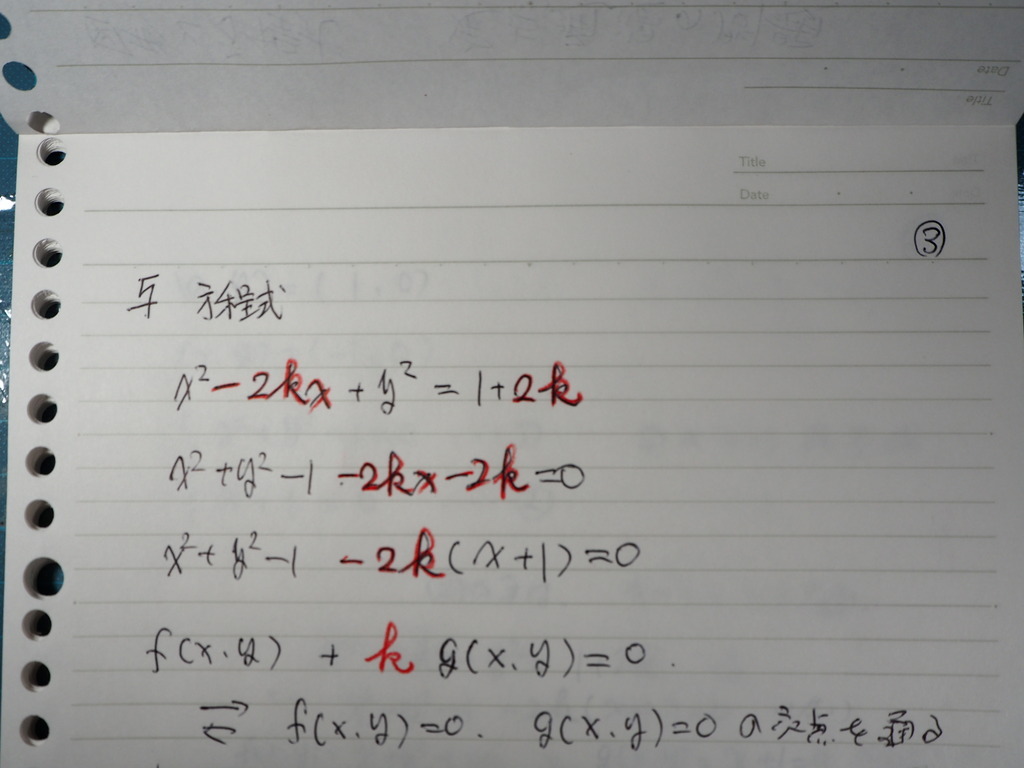 Date
Title
Title
Date
③
方程式
x² - 2kx + y² = 1 + 2k
x² + y² - 1 - 2kx - 2k = 0
x² + y² - 1 - 2k(x + 1) = 0
f(x.y) + k g(x.y) = 0.
⇄ f(x.y) = 0. g(x.y) = 0 の交点を通る